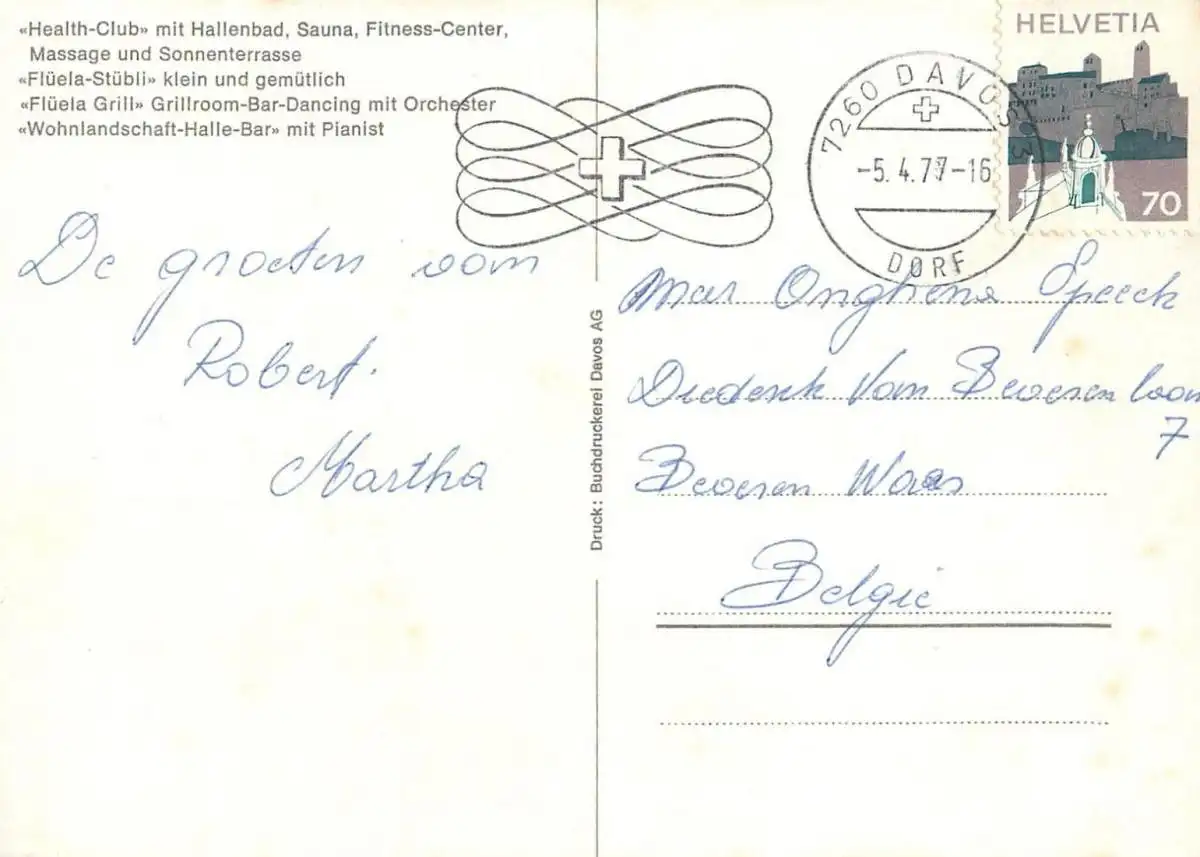 «Health-Club» mit Hallenbad, Sauna, Fitness-Center,
Massage und Sonnenterrasse
«Flüela-Stübli» klein und gemütlich
«Flüela Grill» Grillroom-Bar-Dancing mit Orchester
«Wohnlandschaft-Halle-Bar» mit Pianist
7260 DAVOS 3
-5.4.77-16
DORF
HELVETIA
70
De groeten van
Robert.
Martha
Druck: Buchdruckerei Davos AG
Onghena Speeck
Diederik Van Beveren laan
7
Beveren Waas
België